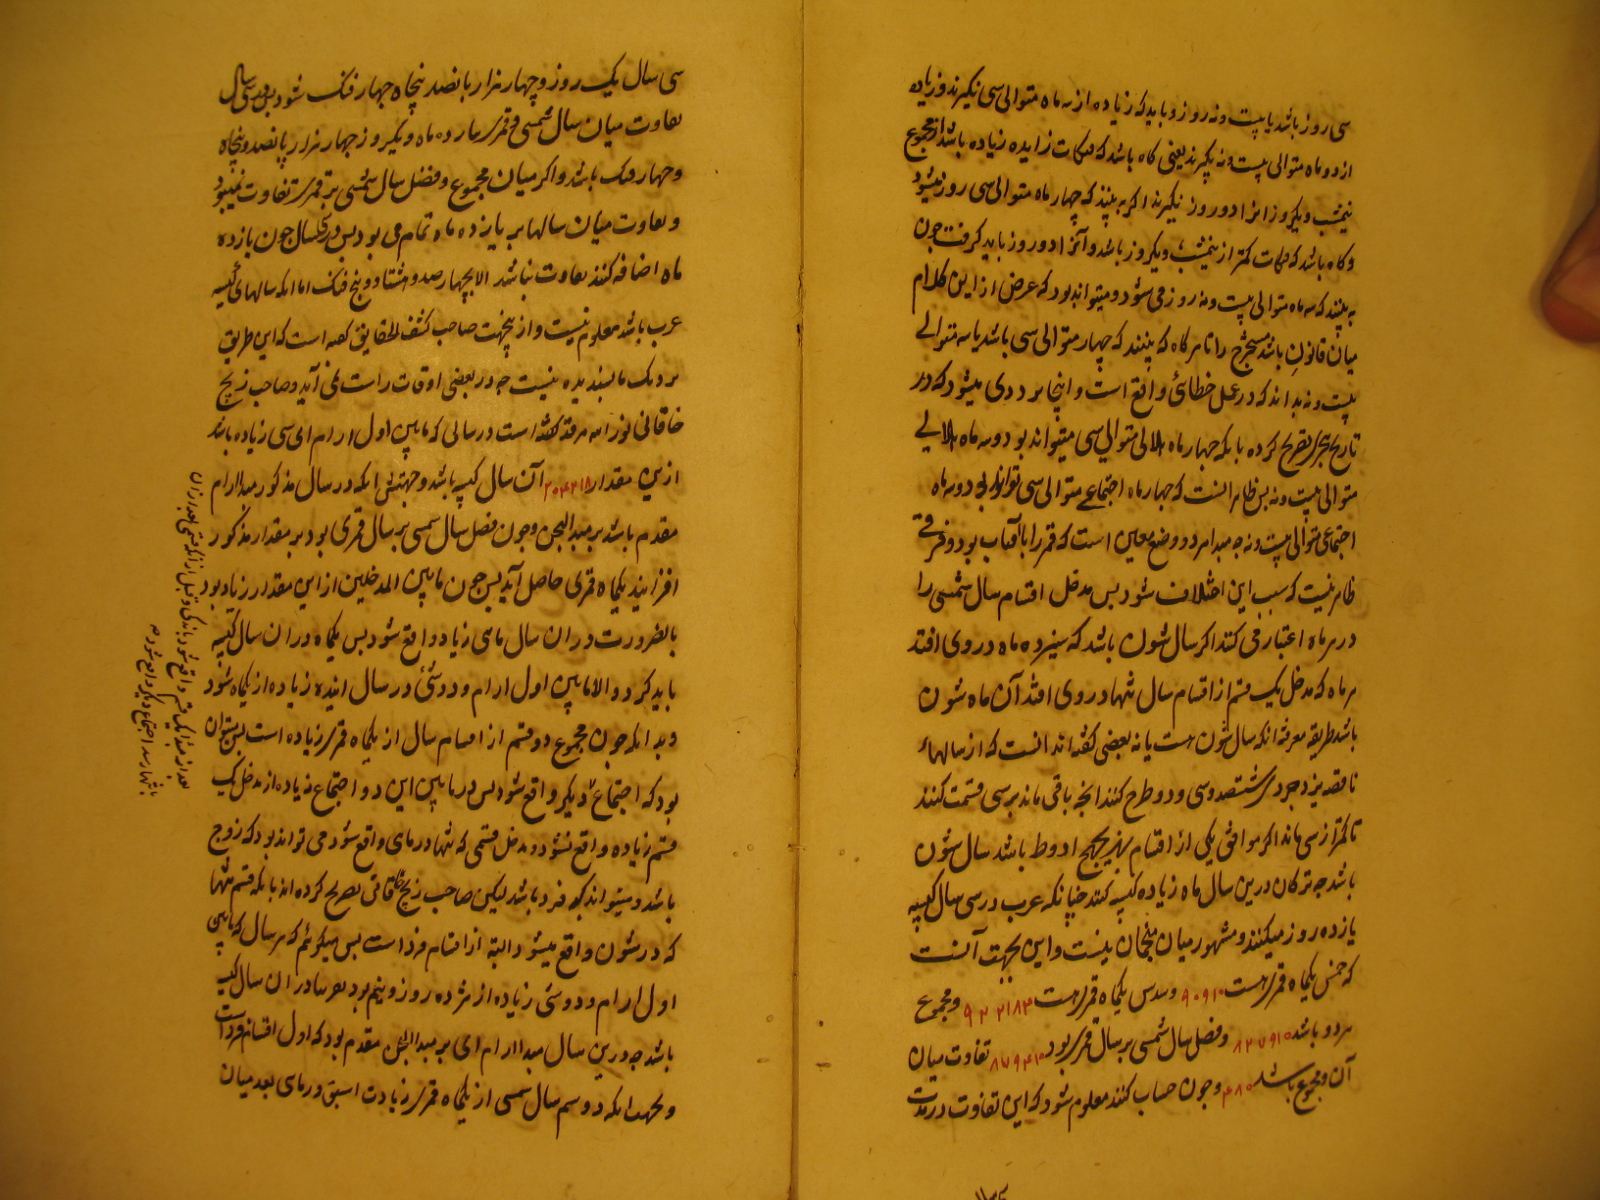 سی روز باشد یا بیست و نه روز و باید که زیاده از سه ماه متوالی سی نگیرند و زیاده
از دو ماه متوالی بیست و نه نگیرند یعنی گاه باشد که فنکات زایده زیاده باشد از مجموع
نیمشب و یکروز انرا دو روز نگیرند اگر به بینند که چهار ماه متوالی سی روز میشود
و گاه باشد که فنکات کمتر از نیمشب و یکروز باشد و آنرا دو روز باید گرفت چون
به بینند که سه ماه متوالی بیست و نه روز می شود و میتواند بود که غرض از این کلام
میان قانون باشد مستخرج را تا هر گاه که بینند که چهار متوالی سی باشد یا سه متوالی
بیست و نه بداند که در عمل خطائی واقع است و اینجا تردد می میشود که در
تاریخ هجری تصریح کرده با نکه چهار ماه هلالی متوالی سی میتواند بود و سه ماه هلالی
متوالی بیست و نه پس ظاهر انست که چهار ماه اجتماعی متوالی سی تواند بود و سه ماه
اجتماعی متوالی بیست و نه چه مبدا هر دو وضع معین است که قمر را با آفتاب بود و فرقی
ظاهر نیست که سبب این اختلاف شود پس مدخل اقسام سال شمسی را
در هر ماه اعتبار می کنند اگر سال شون باشد که سیزده ماه در وی افتد
هر ماه که مدخل یک قسم از اقسام سال تنها در وی افتد آن ماه شون
باشد طریقه معرفه انکه سال شون هست یا نه بعضی گفته اند انست که از سالهاء
ناقصه یزدجردی ششصد و سی و دو طرح کنند انچه باقی ماند بر سی قسمت کنند
تا کمتر از سی ماند اگر موافق یکی از اقسام بهزیجهج ادوط باشد سال شون
باشد چه ترکان درین سال ماه زیاده کبیسه کنند چنانکه عرب در سی سال کبیسه
یازده روز میکنند و مشهور میان منجمان نیست و این بجهت آنست
که خمس یکماه قمری است ۹۰۹۱۰ و سدس یکماه قمری است ۹۲۲۱۸۳ و مجموع
هر دو باشد ۸۲۷۹۱۵ و فضل سال شمسی بر سال قمری بود ۸۷۹۴۱۰ تفاوت میان
آن و مجموع باشد ۴۸۵ و چون حساب کنند معلوم شود که این تفاوت در مدت
سی سال
سی سال یک روز و چهار هزار پانصد پنجاه چهار فنک شود پس بعد سی سال
تفاوت میان سال شمسی و قمری یازده ماه و یکروز چهار هزار پانصد و پنجاه
و چهار فنک باشد و اگر میان مجموع و فضل سال شمسی بر قمری تفاوت نمیبود
و تفاوت میان سالها بر یازده ماه تمام می بود پس در سی سال چون یازده
ماه اضافه کنند تفاوت نباشد الا بچهار صد و هشتاد و پنج فنک اما انکه سالهای کبیسه
عرب باشد معلوم نیست و از ینجهت صاحب کشف الحقایق گفته است که این طریق
نزدیک ما پسندیده نیست چه در بعضی اوقات راست نمی آید و صاحب زیج
خاقانی نور الله مرقده گفته است در سالی که مابین اول ارام ای سی زیاده باشد
ازین مقدار ۲۰۴۲۱۸ آن سال کبیسه باشد و جهتش انکه در سال مذکور مبدا ارام
مقدم باشد بر مبدا لیجن و چون فضل سال شمسی بر سال قمری بود بر مقدار مذکور
افزایند یکماه قمری حاصل آید پس چون مابین المدخلین از این مقدار زیاد بود
بالضرورت در ان سال ماهی زیاد واقع شود پس یکماه در ان سال کبیسه
باید کرد و الا مابین اول ارام و ددسیچی در سال اینده زیاده از یکماه شود
و بدانکه چون مجموع دو قسم از اقسام سال از یکماه قمری زیاده است پس نتوان
بود که اجتماعی دیگر واقع شود پس در مابین این دو اجتماع زیاده از مدخل یک
قسم زیاده واقع نشود و مدخل قسمی که تنها در ماهی واقع شود می تواند بود که زوج
باشد و میتواند که فرد باشد لیکن صاحب زیج خاقانی تصریح کرده اند بانکه قسم تنها
که در شون واقع میشود البته از اقسام فرد است پس میگوئیم که هر سال که مابین
اول ارام و ددسی زیاده از هژده روز و نیم بود تقریبا در ان سال کبیسه
باشد چه درین سال مبدا ارام ای بر مبدا لیجن مقدم بود که اول اقسام فرد است
و بجهت انکه دو سم سال شمسی از یکماه قمری زیادت اسبق در ماهی بعد میان
بعد از مبدا یک قسم واقع شود باندکی و قبل از آنکه قسمی بعد از ان
بانتها رسد اجتماع دیگر واقع شود صه